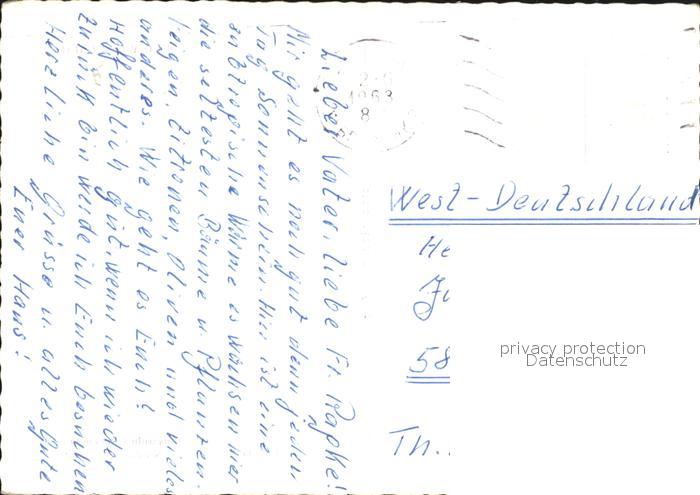 Lieber Vater, liebe Fr. Rapke!
Mir geht es noch gut denn jeden
Tag Sonnenschein. Hier ist eine
subtropische Wärme es wachsen hier
die seltesten Bäume u. Pflanzen.
Feigen, Zitronen, Oliven und vieles
anderes. Wie geht es Euch?
Hoffentlich gut, wenn ich wieder
zurück bin werde ich Euch besuchen
Herzliche Grüsse u. alles Gute
Euer Hans!
1963
8
West-Deutschland
He
58
Th.
privacy protection
Datenschutz